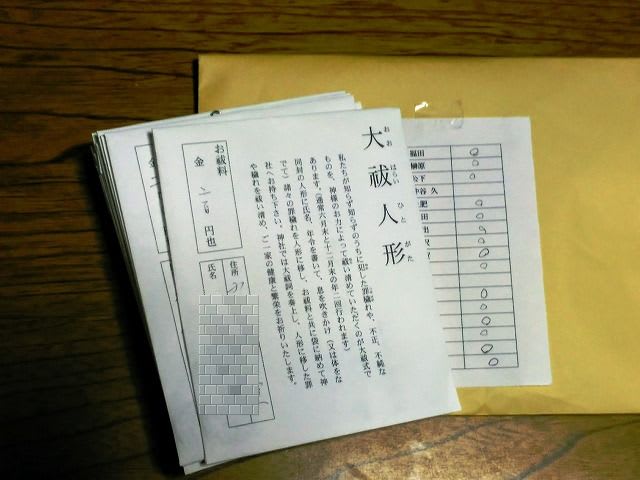 大祓人形
おお はらい ひと がた
私たちが知らず知らずのうちに犯した罪穢れや、不正、不純な
ものを、神様のお力によって祓い清めていただくのが大祓式で
あります。(通常六月末と十二月末の年二回行われます)
同封の人形に氏名、年令を書いて、息を吹きかけ(又は体をな
でて)諸々の罪穢れを人形に移し、お祓料と共に袋に納めて神
社へお持ち下さい。神社では大祓詞を奏上し、人形に移した罪
や穢れを祓い清め、ご一家の健康と繁栄をお祈りいたします。
お祓料
金 円也
住所
氏名
福田 ○
榊原 ○
松下 ○
中谷 久
肥 ○
田 ○
出 ○
沢 ○